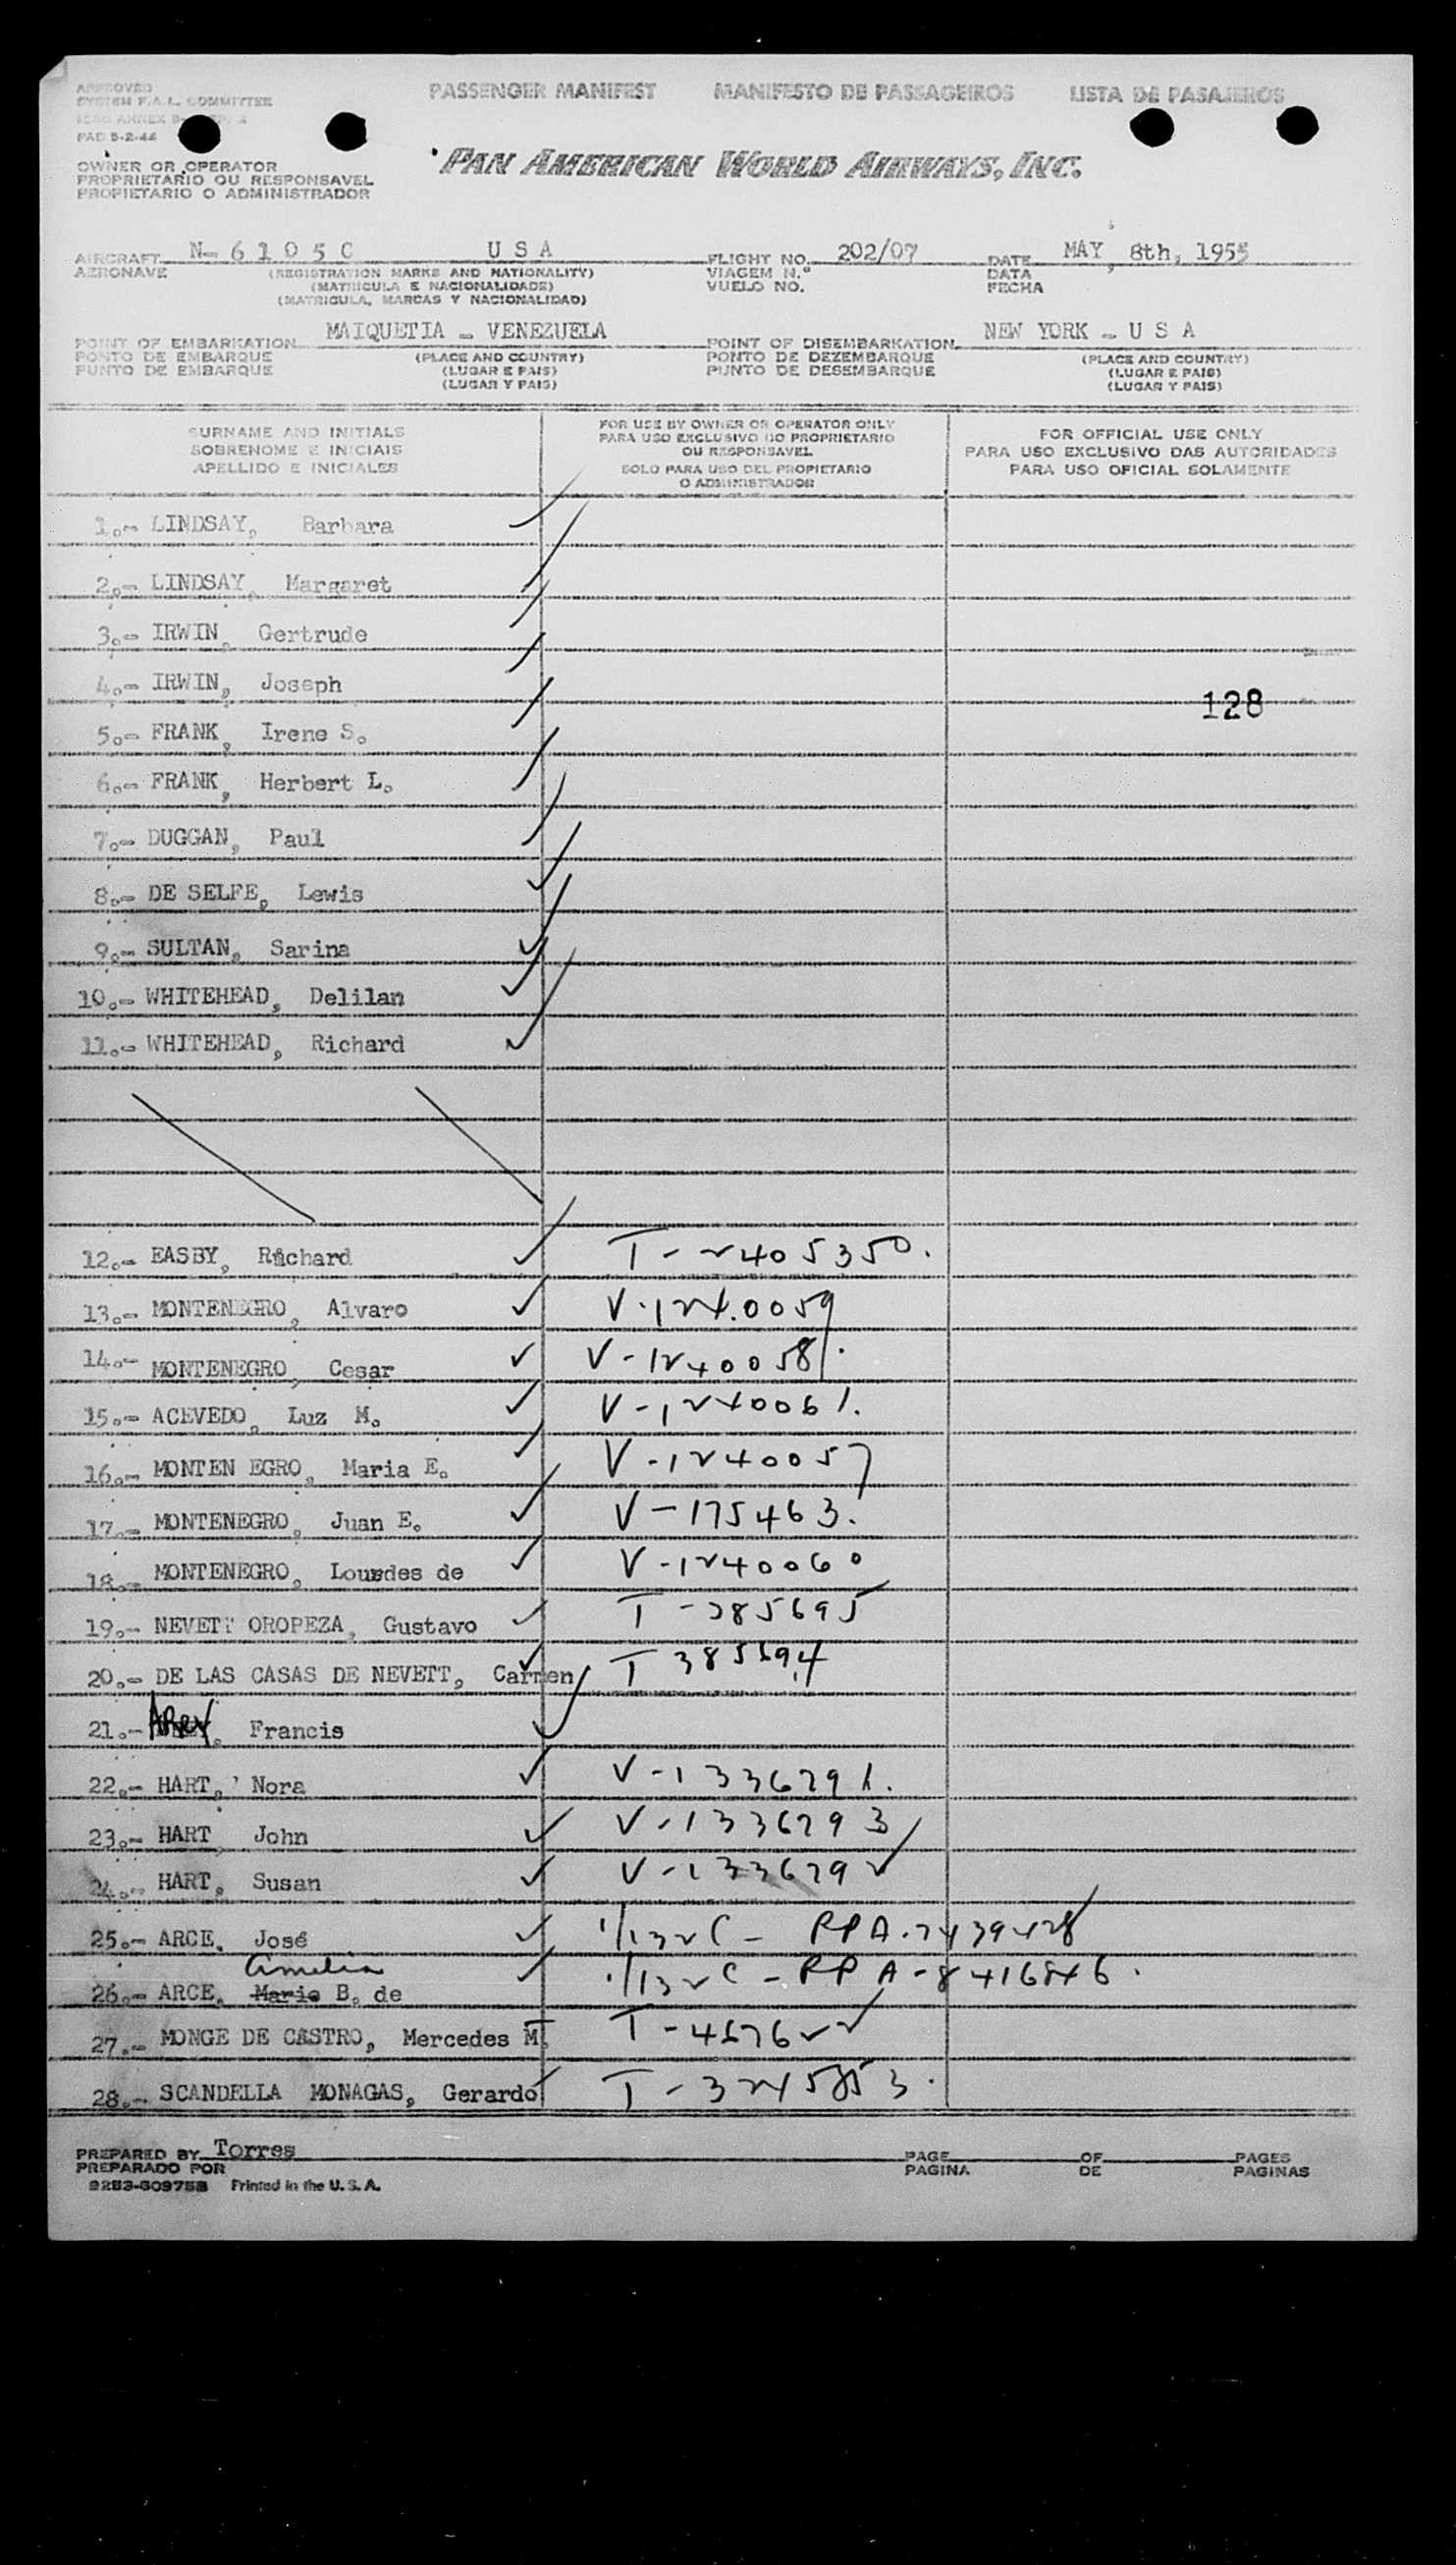 APPROVED
SYSTEM F.A.L. COMMITTEE
PAC 5-2-44
PASSENGER MANIFEST MANIFESTO DE PASSAGEIROS LISTA DE PASAJEROS
OWNER OR OPERATOR
PROPRIETARIO OU RESPONSAVEL
PROPIETARIO O ADMINISTRADOR
PAN AMERICAN WORLD AIRWAYS, INC.
AIRCRAFT N- 6 1 0 5 C U S A FLIGHT NO. 202/07 DATE MAY, 8th, 1955
AERONAVE (REGISTRATION MARKS AND NATIONALITY) VIAGEM N.º DATA
(MATRICULA E NACIONALIDADE) VUELO NO. FECHA
(MATRICULA, MARCAS Y NACIONALIDAD)
POINT OF EMBARKATION MAIQUETIA - VENEZUELA POINT OF DISEMBARKATION NEW YORK - U S A
PONTO DE EMBARQUE (PLACE AND COUNTRY) PONTO DE DEZEMBARQUE (PLACE AND COUNTRY)
PUNTO DE EMBARQUE (LUGAR E PAIS) PUNTO DE DESEMBARQUE (LUGAR E PAIS)
(LUGAR Y PAIS) (LUGAR Y PAIS)
SURNAME AND INITIALS
SOBRENOME E INICIAIS
APELLIDO E INICIALES
FOR USE BY OWNER OR OPERATOR ONLY
PARA USO EXCLUSIVO DO PROPRIETARIO
OU RESPONSAVEL
SOLO PARA USO DEL PROPIETARIO
O ADMINISTRADOR
FOR OFFICIAL USE ONLY
PARA USO EXCLUSIVO DAS AUTORIDADES
PARA USO OFICIAL SOLAMENTE
1.- LINDSAY, Barbara
2.- LINDSAY, Margaret
3.- IRWIN, Gertrude
4.- IRWIN, Joseph
128
5.- FRANK, Irene S.
6.- FRANK, Herbert L.
7.- DUGGAN, Paul
8.- DE SELFE, Lewis
9.- SULTAN, Sarina
10.- WHITEHEAD, Delilan
11.- WHITEHEAD, Richard
12.- EASBY, Richard T-2405350.
13.- MONTENEGRO, Alvaro V-1240059
14.- MONTENEGRO, Cesar V-1240058.
15.- ACEVEDO, Luz M. V-1240061.
16.- MONTEN EGRO, Maria E. V-1240057
17.- MONTENEGRO, Juan E. V-175463.
18.- MONTENEGRO, Lourdes de V-1240060
19.- NEVETT OROPEZA, Gustavo T-385695
20.- DE LAS CASAS DE NEVETT, Carmen T 385694
21.- AREY, Francis
22.- HART, Nora V-1336791.
23.- HART John V-1336793
24.- HART, Susan V-1336792
25.- ARCE, José
Amelia
26.- ARCE, Maria B. de
27.- MONGE DE CASTRO, Mercedes M.
28.- SCANDELLA MONAGAS, Gerardo T-3245853.
PREPARED BY Torres PAGE OF PAGES
PREPARADO POR PAGINA DE PAGINAS
Printed in the U.S.A.